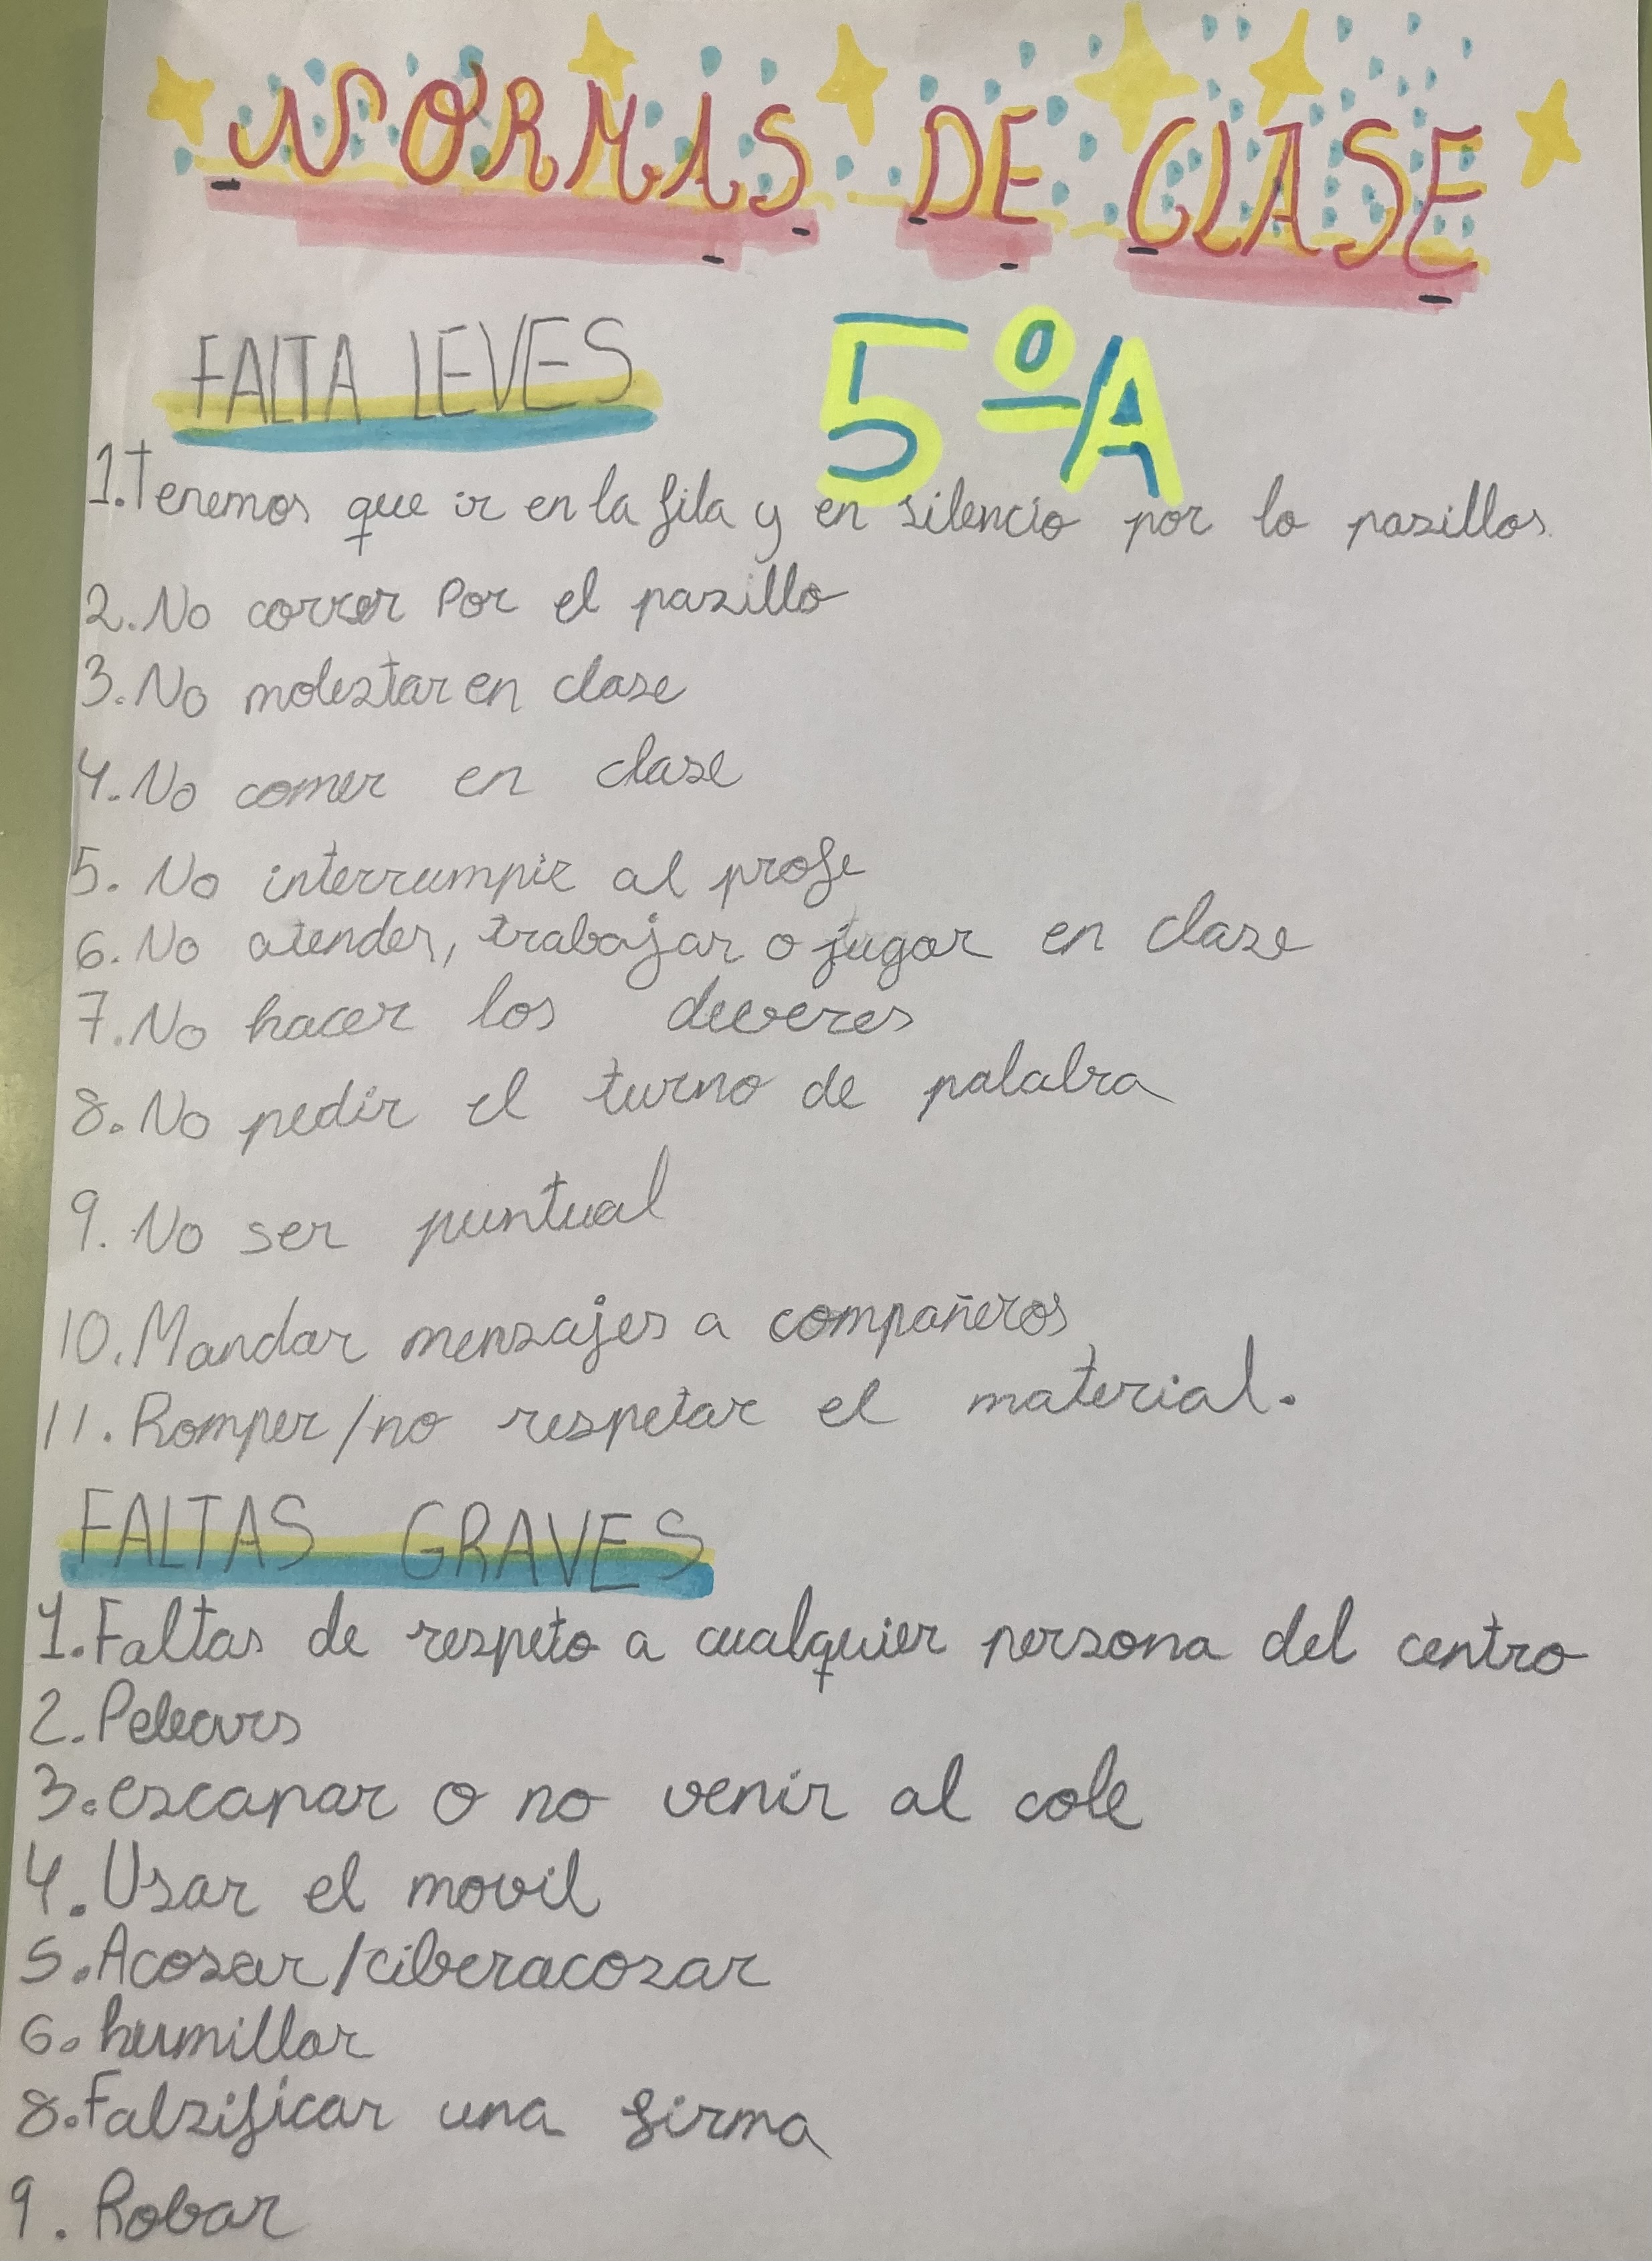 NORMAS DE CLASE
FALTA LEVES
5ºA
1. Tenemos que ir en la fila y en silencio por lo pasillos.
2. No correr Por el pasillo
3. No molestar en clase
4. No comer en clase
5. No interrumpir al profe
6. No atender, trabajar o jugar en clase
7. No hacer los deveres
8. No pedir el turno de palabra
9. No ser puntual
10. Mandar mensajes a compañeros
11. Romper/no respetar el material.
FALTAS GRAVES
1. Faltas de respeto a cualquier persona del centro
2. Pelears
3. escapar o no venir al cole
4. Usar el movil
5. Acosar/ciberacosar
6. humillar
8. Falsificar una firma
9. Robar